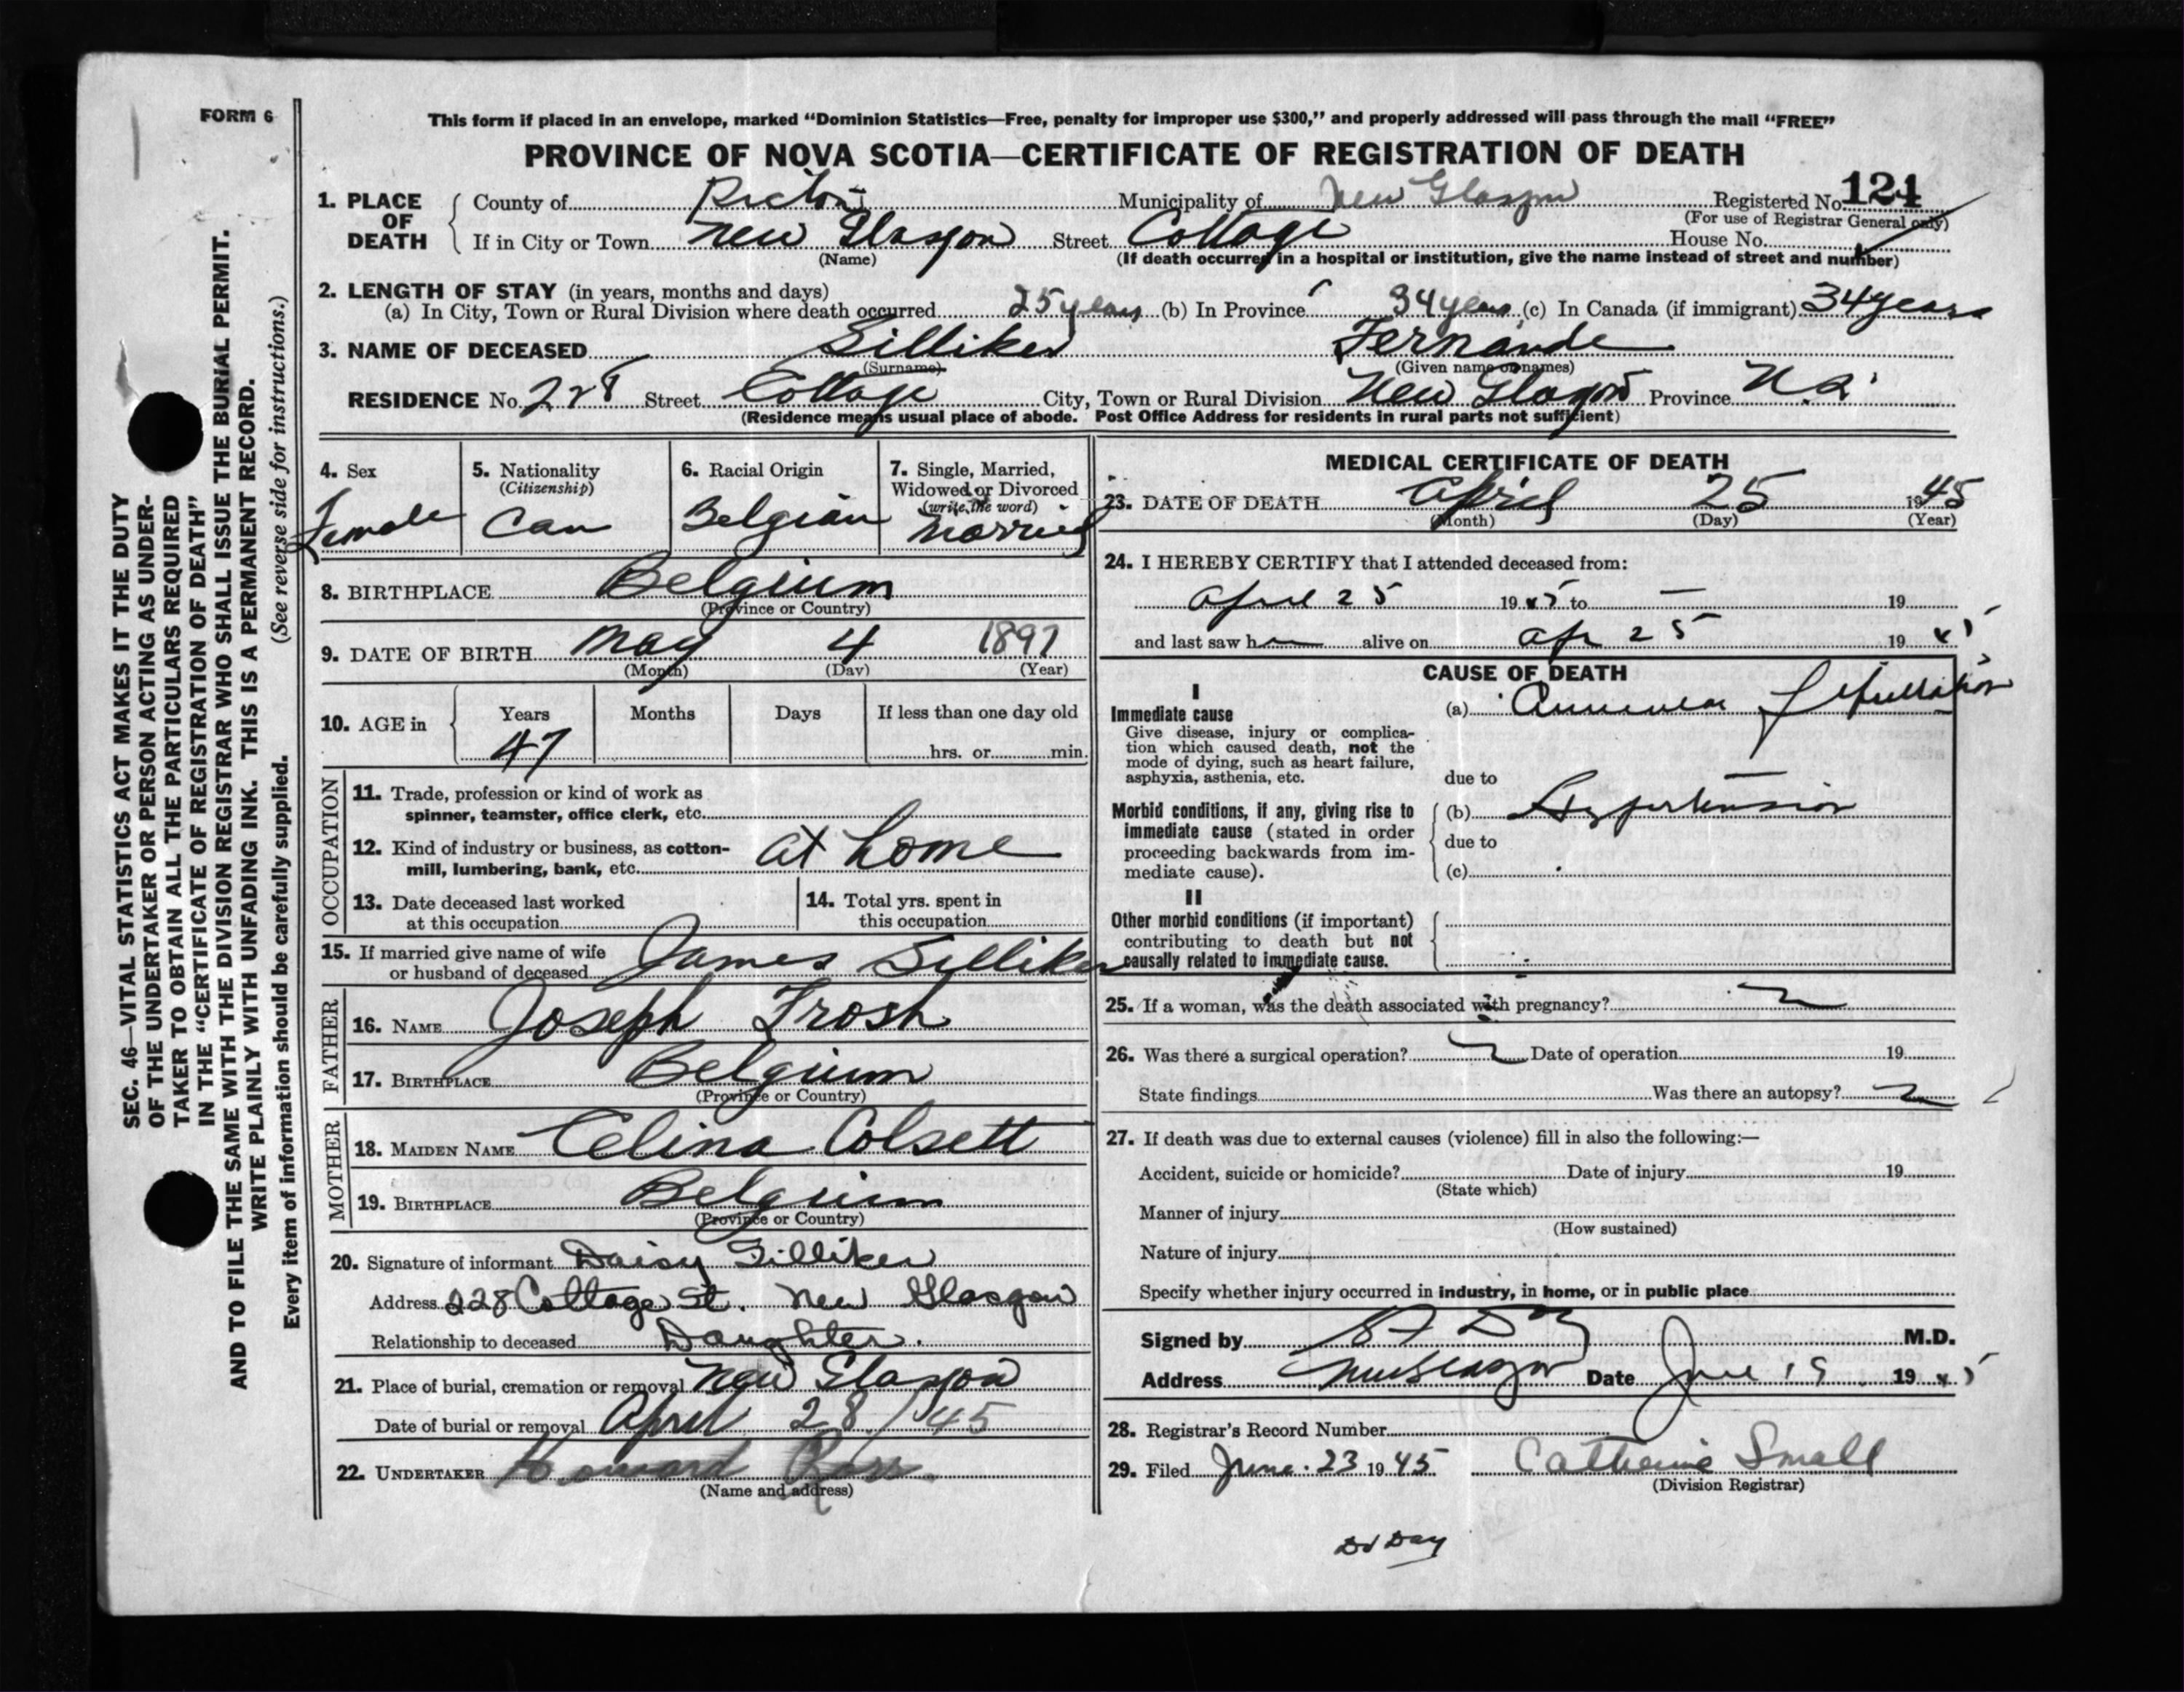 FORM 6
This form if placed in an envelope, marked "Dominion Statistics—Free, penalty for improper use $300," and properly addressed will pass through the mail "FREE"
PROVINCE OF NOVA SCOTIA—CERTIFICATE OF REGISTRATION OF DEATH
SEC. 46—VITAL STATISTICS ACT MAKES IT THE DUTY
OF THE UNDERTAKER OR PERSON ACTING AS UNDER-
TAKER TO OBTAIN ALL THE PARTICULARS REQUIRED
IN THE "CERTIFICATE OF REGISTRATION OF DEATH"
AND TO FILE THE SAME WITH THE DIVISION REGISTRAR WHO SHALL ISSUE THE BURIAL PERMIT.
WRITE PLAINLY WITH UNFADING INK. THIS IS A PERMANENT RECORD.
Every item of information should be carefully supplied. (See reverse side for instructions.)
1. PLACE OF DEATH
County of Pictou Municipality of New Glasgow Registered No. 121
(For use of Registrar General only)
If in City or Town New Glasgow Street Cottage House No.
(Name) (If death occurred in a hospital or institution, give the name instead of street and number)
2. LENGTH OF STAY (in years, months and days)
(a) In City, Town or Rural Division where death occurred 25 years (b) In Province 34 years (c) In Canada (if immigrant) 34 years
3. NAME OF DECEASED Silliker Fernande
(Surname) (Given name or names)
RESIDENCE No. 228 Street Cottage City, Town or Rural Division New Glasgow Province N.S.
(Residence means usual place of abode. Post Office Address for residents in rural parts not sufficient)
4. Sex Female
5. Nationality (Citizenship) Can
6. Racial Origin Belgian
7. Single, Married, Widowed or Divorced (write the word) Married
8. BIRTHPLACE Belgium
(Province or Country)
9. DATE OF BIRTH May 4 1897
(Month) (Day) (Year)
10. AGE in Years Months Days If less than one day old
47 hrs. or min.
OCCUPATION
11. Trade, profession or kind of work as
spinner, teamster, office clerk, etc.
12. Kind of industry or business, as cotton-
mill, lumbering, bank, etc. at home
13. Date deceased last worked
at this occupation
14. Total yrs. spent in
this occupation
15. If married give name of wife
or husband of deceased James Silliker
FATHER
16. NAME Joseph Frosh
17. BIRTHPLACE Belgium
(Province or Country)
MOTHER
18. MAIDEN NAME Celina Colsett
19. BIRTHPLACE Belgium
(Province or Country)
20. Signature of informant Daisy Silliker
Address 228 Cottage St. New Glasgow
Relationship to deceased Daughter.
21. Place of burial, cremation or removal New Glasgow
Date of burial or removal April 28/45
22. UNDERTAKER Howard Ross.
(Name and address)
MEDICAL CERTIFICATE OF DEATH
23. DATE OF DEATH April 25 1945
(Month) (Day) (Year)
24. I HEREBY CERTIFY that I attended deceased from:
April 25 1945 to — 19
and last saw h alive on Apr 25 1945
CAUSE OF DEATH
I
Immediate cause
Give disease, injury or complica-
tion which caused death, not the
mode of dying, such as heart failure,
asphyxia, asthenia, etc.
(a)
due to
Morbid conditions, if any, giving rise to
immediate cause (stated in order
proceeding backwards from im-
mediate cause).
(b) Hypertension
due to
(c)
II
Other morbid conditions (if important)
contributing to death but not
causally related to immediate cause.
25. If a woman, was the death associated with pregnancy?
26. Was there a surgical operation? Date of operation 19
State findings Was there an autopsy?
27. If death was due to external causes (violence) fill in also the following:—
Accident, suicide or homicide? Date of injury 19
(State which)
Manner of injury
(How sustained)
Nature of injury
Specify whether injury occurred in industry, in home, or in public place
Signed by M.D.
Address New Glasgow Date June 19 1945
28. Registrar's Record Number
29. Filed June 23 1945 Catherine Small
(Division Registrar)
Dr Day